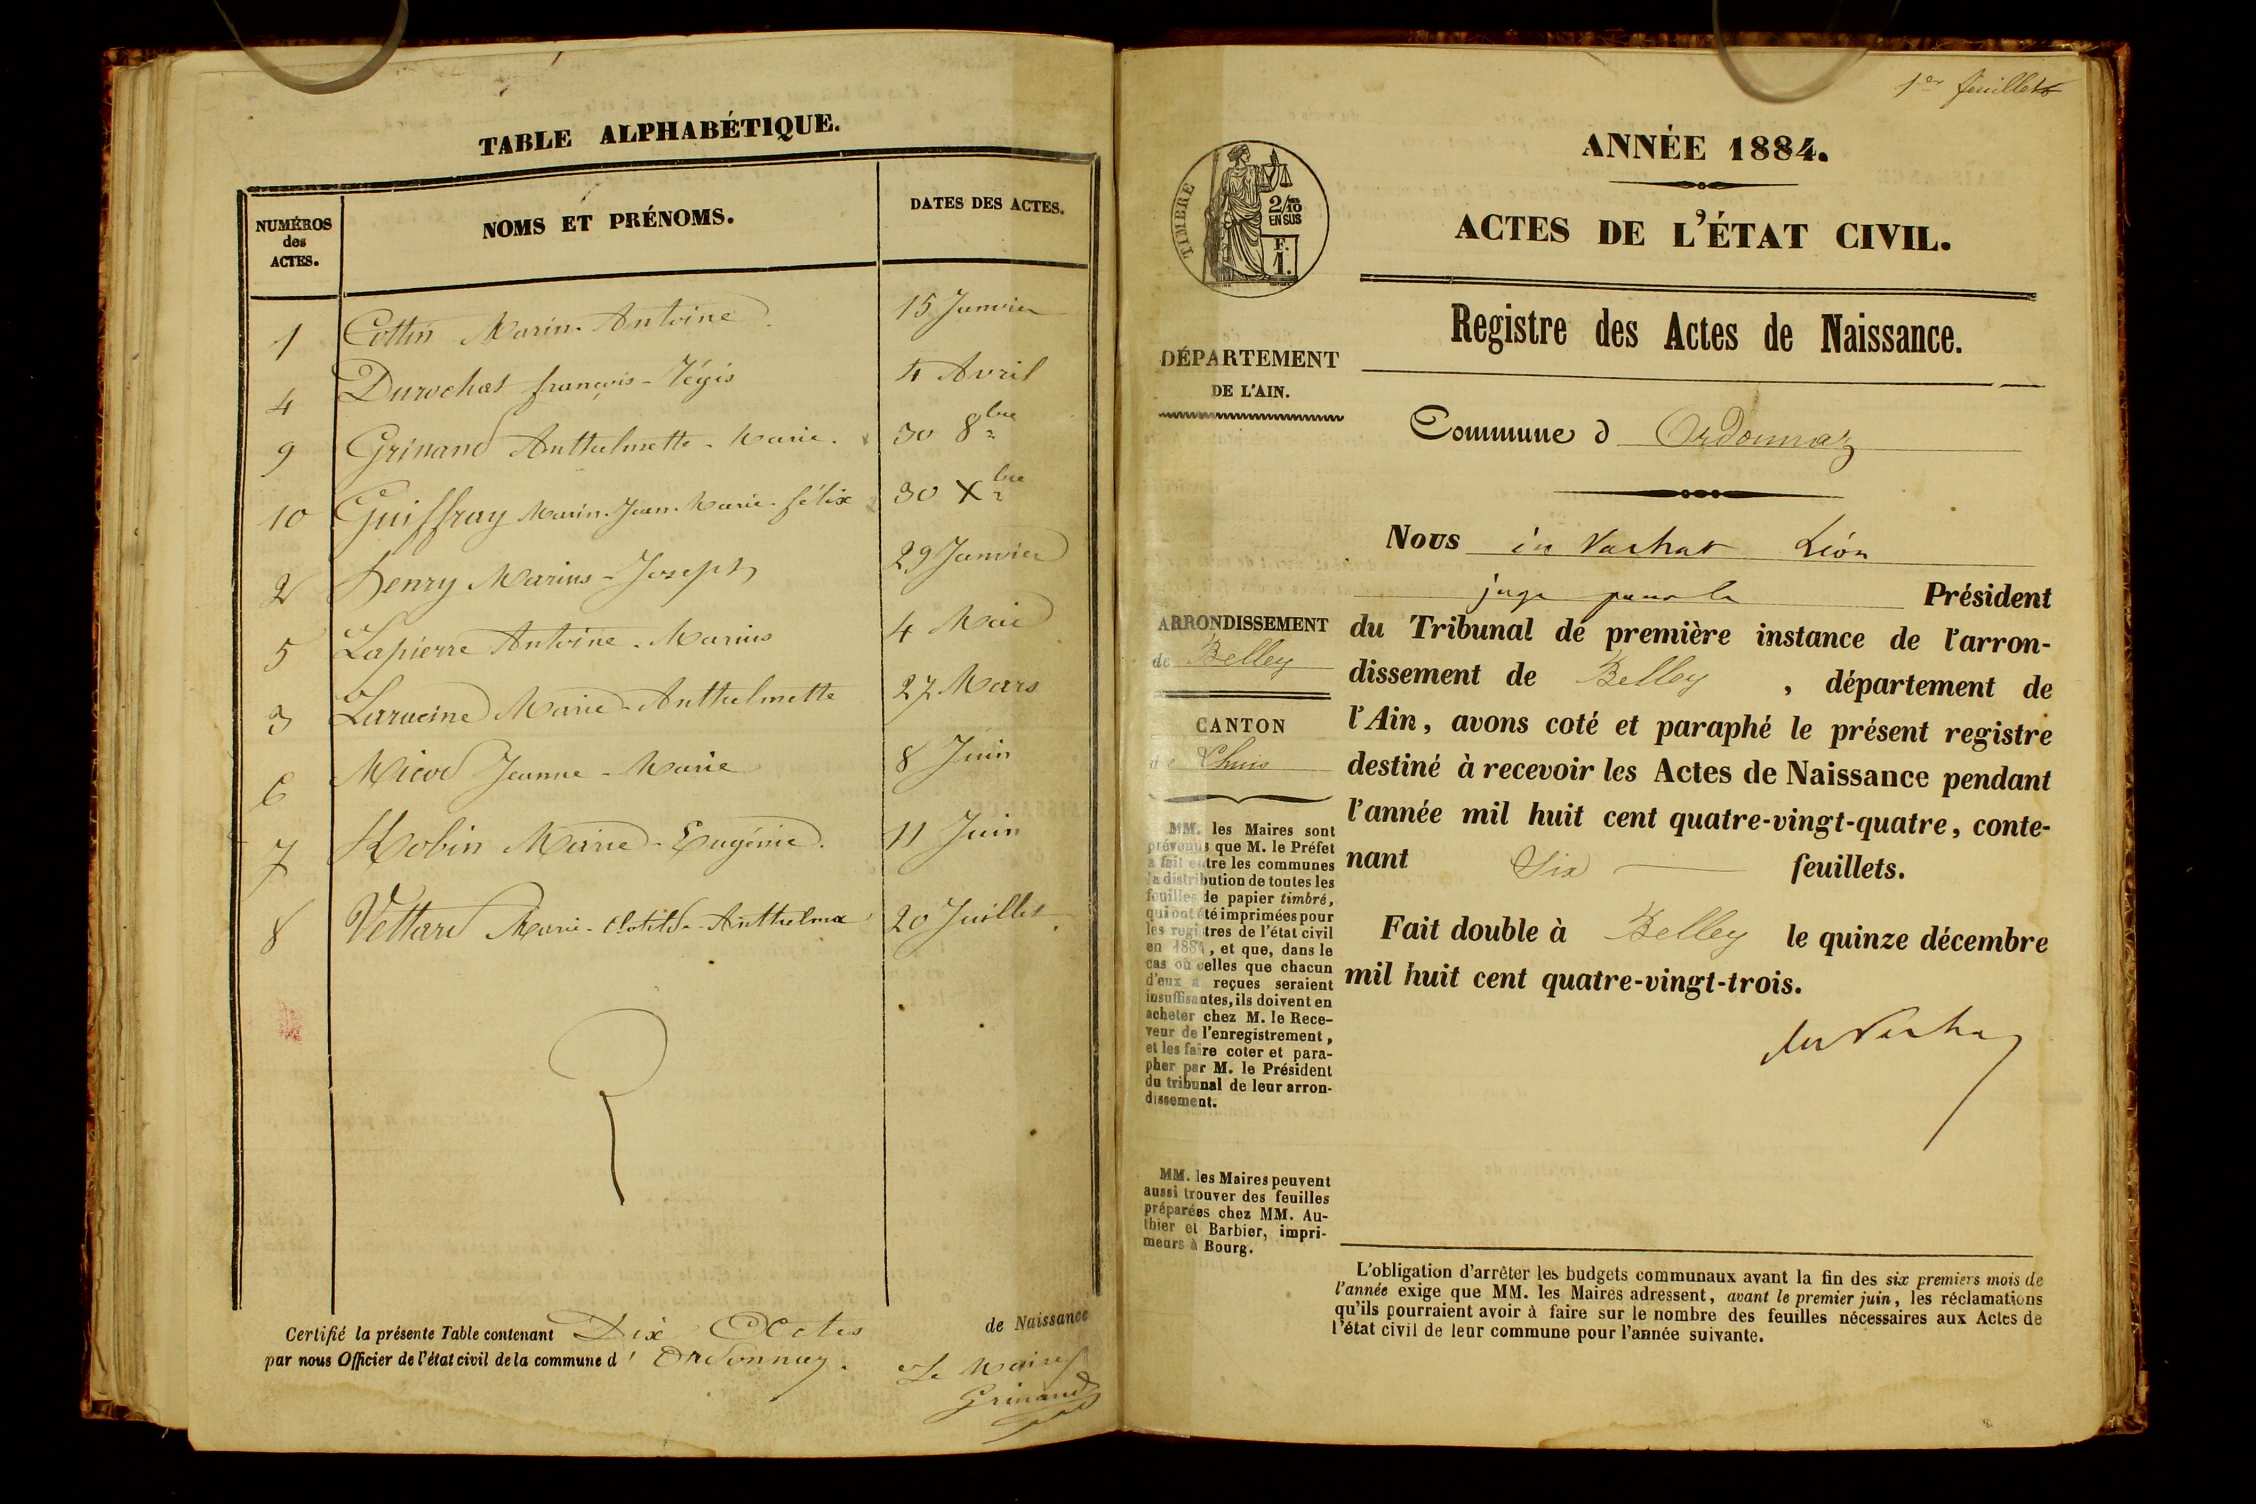 TABLE ALPHABÉTIQUE.
NUMÉROS des ACTES.
NOMS ET PRÉNOMS.
DATES DES ACTES.
1 Cottin Marin-Antoine 15 Janvier
4 Durochat françois-Régis 4 Avril
9 Grinand Anthelmette-Marie. 30 8bre
10 Guiffray Marin-Jean-Marie-félix 30 Xbre
2 Henry Marius-Joseph 29 Janvier
5 Lapierre Antoine-Marius 4 Mai
3 Laracine Marie-Anthelmette 27 Mars
6 Micod Jeanne-Marie 8 Juin
7 Robin Marie-Eugénie. 11 Juin
8 Vettard Marie-Clotilde-Anthelme 20 Juillet
Certifié la présente Table contenant Dix Actes de Naissance
par nous Officier de l'état civil de la commune d' Ordonnaz.
Le Maire
Grinand
1er feuillet
TIMBRE
2/10
EN SUS
F.
1.
ANNÉE 1884.
ACTES DE L'ÉTAT CIVIL.
Registre des Actes de Naissance.
DÉPARTEMENT
DE L'AIN.
Commune d Ordonnaz
ARRONDISSEMENT
de Belley
CANTON
de Lhuis
MM. les Maires sont
prévenus que M. le Préfet
a fait entre les communes
la distribution de toutes les
feuilles de papier timbré,
qui ont été imprimées pour
les registres de l'état civil
en 1884, et que, dans le
cas où celles que chacun
d'eux a reçues seraient
insuffisantes, ils doivent en
acheter chez M. le Rece-
veur de l'enregistrement,
et les faire coter et para-
pher par M. le Président
du tribunal de leur arron-
dissement.
MM. les Maires peuvent
aussi trouver des feuilles
préparées chez MM. Au-
thier et Barbier, impri-
meurs à Bourg.
Nous Léon
juge pour le Président
du Tribunal de première instance de l'arron-
dissement de Belley, département de
l'Ain, avons coté et paraphé le présent registre
destiné à recevoir les Actes de Naissance pendant
l'année mil huit cent quatre-vingt-quatre, conte-
nant Six feuillets.
Fait double à Belley le quinze décembre
mil huit cent quatre-vingt-trois.
L'obligation d'arrêter les budgets communaux avant la fin des six premiers mois de
l'année exige que MM. les Maires adressent, avant le premier juin, les réclamations
qu'ils pourraient avoir à faire sur le nombre des feuilles nécessaires aux Actes de
l'état civil de leur commune pour l'année suivante.